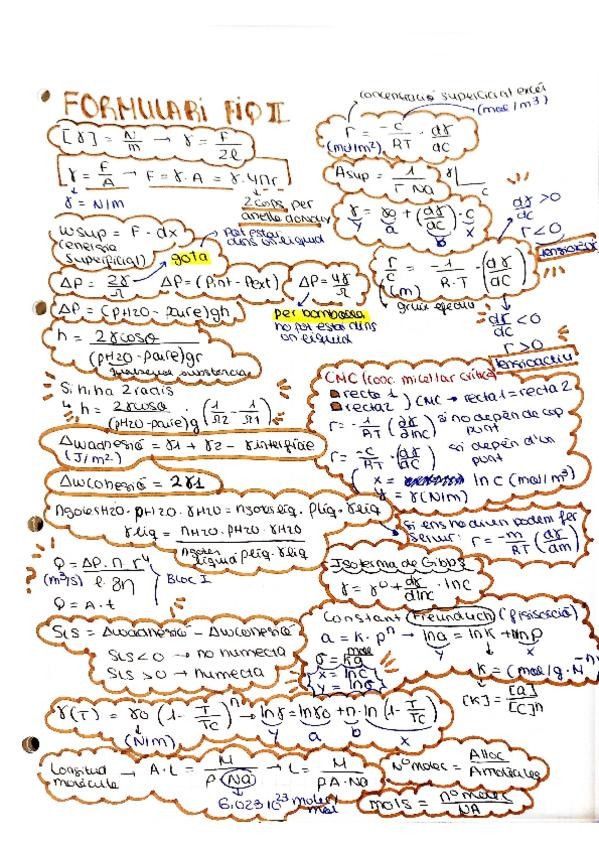 FORMULARI FIQ II
[γ] = N/m → γ = F/2l
γ = F/A → F = γ·A = γ·4πr
γ = N/m
2 cops, per
anella donouy
Wsup = F·dx
(energia
superficial)
gota
pot estar
dins un líquid
ΔP = 2γ/r
ΔP = (Pint - Pext)
ΔP = 4γ/r
ΔP = (ρH2O - ρaire)gh
per bombolla
no pot estar dins
un líquid
h = 2γcosθ/(ρH2O - ρaire)gr
Si hi ha 2 radis
↳ h = 2γcosθ/(ρH2O - ρaire)g · (1/r2 - 1/r1)
ΔWadhesió = γ1 + γ2 - γinterfície
(J/m²)
ΔWcohesió = 2γ1
ngotesH2O·ρH2O·γH2O = ngotesliq·ρliq·γliq
γliq = nH2O·ρH2O·γH2O/ngotes líquid ρliq·γliq
Q = ΔP·π·r⁴/l·8η
(m³/s)
Bloc I
Q = A·t
SLS = ΔWadhesió - ΔWcohesió
SLS < 0 → no mulla
γ(T) = γ0 (1 - T/Tc)ⁿ → lnγ = lnγ0 + n·ln(1 - T/Tc)
(N/m)
y a b x
Longitud
molècula → A·L = M/ρ(NA) → L = M/ρA·NA
6.023·10²³ molec/mol
concentració superficial excés
(mol/m³)
Γ = -c/RT · dγ/dC
(mol/m²)
Asup = 1/Γ·NA
γ
c
γ = γ0 + (dγ/dC)·C
y a b x
dγ/dc > 0
Γ < 0
tensioiònic
Γ/C = -1/R·T · (dγ/dC)
(m) gruix efectiu
dγ/dC < 0
Γ > 0
tensioactiu
CMC (conc. micel·lar crítica)
recta 1
recta 2 ) CMC → recta 1 = recta 2
Γ = -1/RT (dγ/dlnC) si no depèn de cap
punt
Γ = -C/RT·(dγ/dC) si depèn d'un
punt
x = ln C (mol/m³)
y = γ (N/m)
si ens ho diuen podem fer
servir: Γ = -m/RT (dγ/dm)
Isoterma de Gibbs
γ = γ⁰ + dγ/dlnC · lnC
Constant Freundlich (fisisorció)
a = K·pⁿ → lna = lnK + nlnp
y x
σ = mol/kg
x = lnC
y = lnσ
[K] = [a]/[C]ⁿ
Nºmolec = Alloc/Amolècules
mols = nºmolec/NA